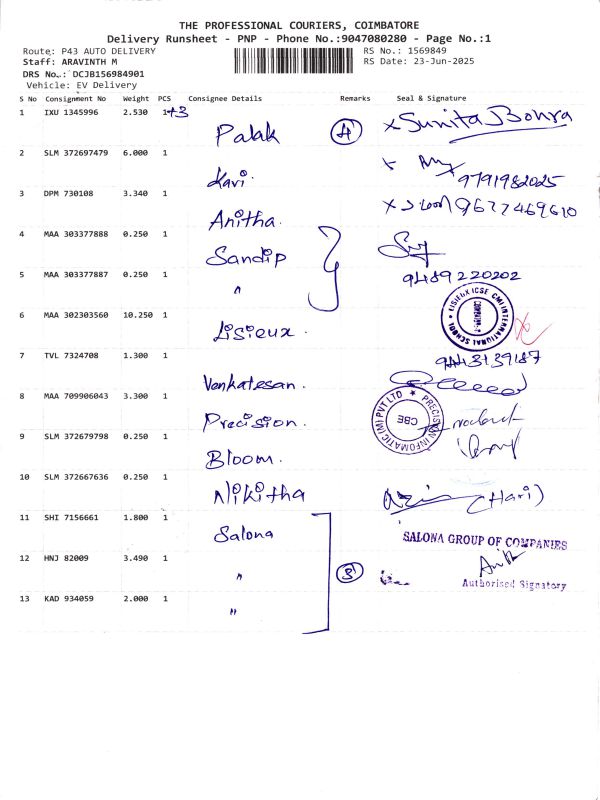 THE PROFESSIONAL COURIERS, COIMBATORE
Delivery Runsheet - PNP - Phone No.:9047080280 - Page No.:1
Route: P43 AUTO DELIVERY RS No.: 1569849
Staff: ARAVINTH M RS Date: 23-Jun-2025
DRS No.: DCJB156984901
Vehicle: EV Delivery
S No Consignment No Weight PCS Consignee Details Remarks Seal & Signature
1 IXU 1345996 2.530 1+3 Palak 4 x Sunita Bohra
2 SLM 372697479 6.000 1 Kavi. 9791982025
3 DPM 730108 3.340 1 Anitha. 9677469610
4 MAA 303377888 0.250 1 Sandip
5 MAA 303377887 0.250 1 " 9489220202
6 MAA 302303560 10.250 1 Lisieux. LISIEUX ICSE CMI INTERNATIONAL SCHOOL
7 TVL 7324708 1.300 1 Venkatesan. 9443139187
8 MAA 709906043 3.300 1 Precision. PRECISION INFOMATIC (M) PVT LTD CBE
9 SLM 372679798 0.250 1 Bloom.
10 SLM 372667636 0.250 1 Nikitha (Hari)
11 SHI 7156661 1.800 1 Salona SALONA GROUP OF COMPANIES
12 HNJ 82009 3.490 1 " 3 Authorised Signatory
13 KAD 934059 2.000 1 "